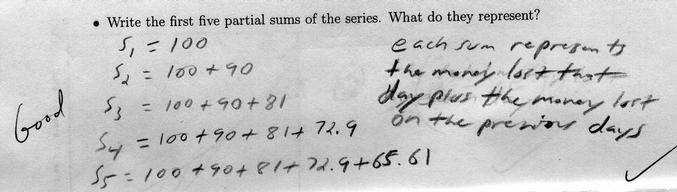 • Write the first five partial sums of the series. What do they represent?
S₁ = 100
S₂ = 100 + 90
S₃ = 100 + 90 + 81
S₄ = 100 + 90 + 81 + 72.9
S₅ = 100 + 90 + 81 + 72.9 + 65.61
each sum represents
the money lost that
day plus the money lost
on the previous days
Good